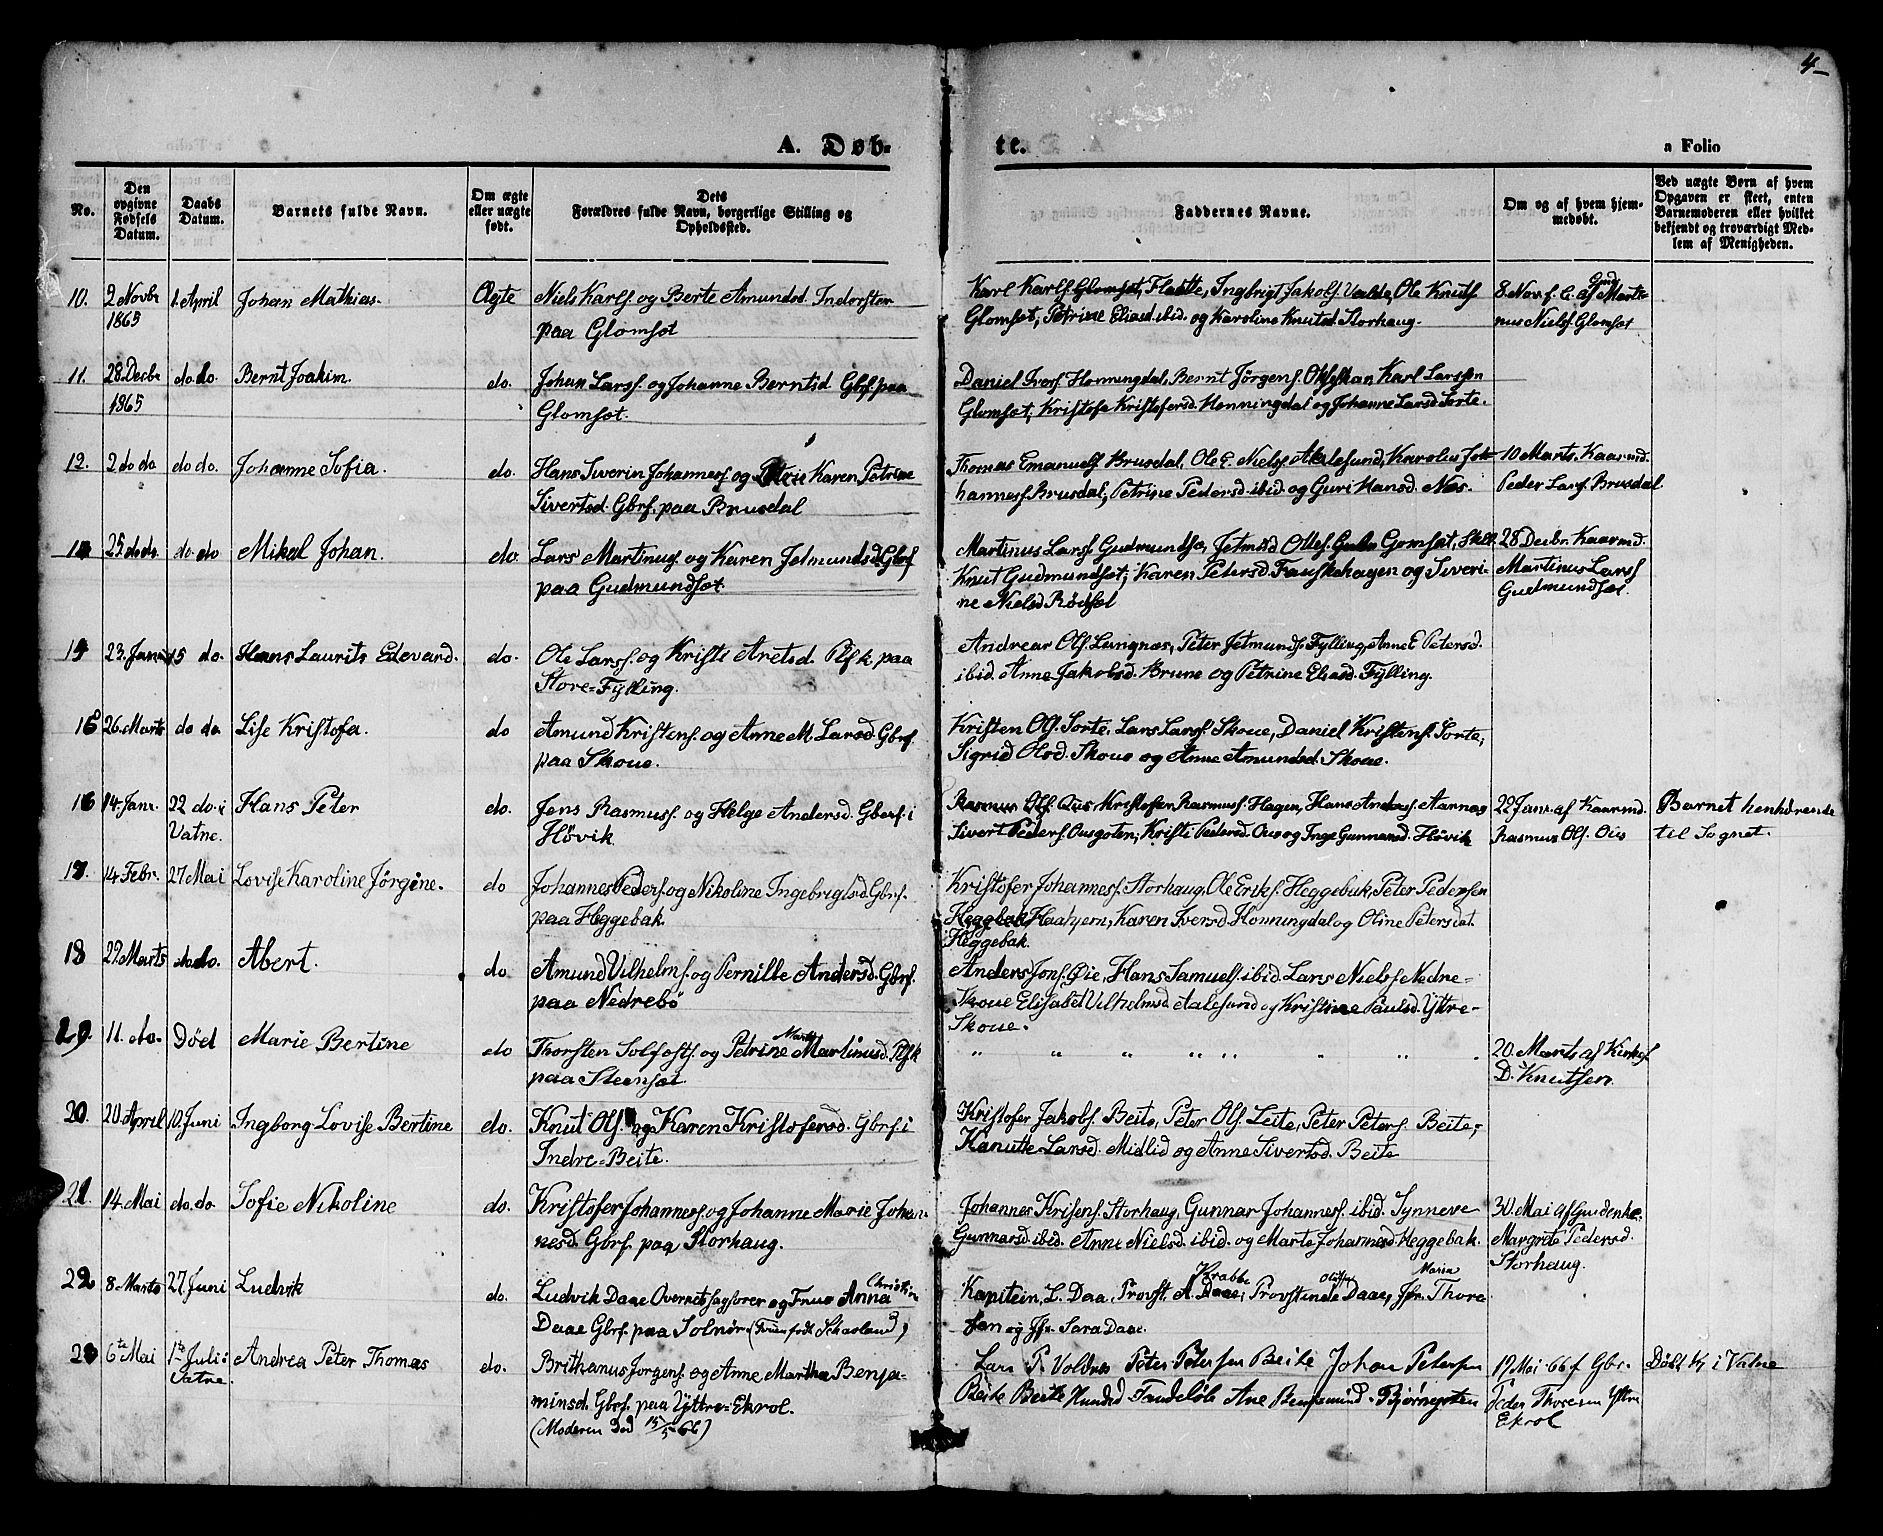 4
A. Døb-
te.
a Folio
No.
Den opgivne Fødsels Datum.
Daabs Datum.
Barnets fulde Navn.
Om ægte eller uægte født.
Dets Forældres fulde Navn, borgerlige Stilling og Opholdssted.
Faddernes Navne.
Om og af hvem hjemmedøbt.
Ved uægte Børn af hvem Opgaven er skeet, enten Barnemoderen eller hvilket bekjendt og troværdigt Medlem af Menigheden.
10. 2 Novbr 1. April Johan Mathias. Ægte Niels Karls. og Berte Amundsd. Inderster
1865 paa Glomset
Karl Karls. Glomset, Flaatte, Ingbrigt Jakobs. Valde, Ole Knuts
Glomset, Petrine Eliasd. ibid. og Karoline Knutsd. Storhaug.
8 Nov. f. E. af Gmd Marti-
nus Niels. Glomset
11. 28. Decbr do. do. Bernt Joakim. do. Johan Lars. og Johanne Berntsd. Gbrf. paa
1865 Glomset.
Daniel Ivers. Honningdal, Bernt Jørgens. Karl Larsen
Glomset, Kristofa Kristofersd. Honningdal og Johanne Larsd. Sorte.
12. 2 do do do do. Johanne Sofia. do. Hans Siverin Johannes. og Karen Petrine
Sivertsd. Gbrf. paa Brusdal
Thomas Emanuels. Brusdal, Ole E. Niels. Aalesund, Karolus Jo-
hannes. Brusdal, Petrine Pedersd. ibid. og Guri Hansd. Næs.
10 Marts. Kaarmd.
Peder Lars. Brusdal
25. do do. do. do Mikal Johan. do. Lars Martinus. og Karen Jetmundsd. Gbrf
paa Gudmundset
Martinus Lars. Gudmundset, Jetmund Ols. Gomset, Skoll.
Knut Gudmundset, Karen Petersd. Fauskehagen og Siveri-
ne Nielsd Rødset
28 Decbr. Kaarmd.
Martinus Lars
Gudmundset.
23. Janr 15 do. Hans Laurits Edevard. do. Ole Lars. og Kristi Aretsd. Plsk. paa
Store-Fylling.
Andreas Ols. Lungnæs, Peter Jetmunds. Fylling, Anne E Petersd.
ibid. Anne Jakobsd. Brune og Petrine Eliasd. Fylling.
26. Marts do do. Lise Kristofa. do Amund Kristens. og Anne M. Larsd. Gbrf.
paa Skoue.
Kristen Ols. Sorte, Lars Lars. Skoue, Daniel Kristens. Sorte,
Sigrid Olsd. Skoue og Anne Amundsd. Skoue.
16 14. Janr. 22 do. i Hans Peter do. Jens Rasmus. og Helge Andersd. Gbrf. i
Vatne. Høvik.
Rasmus Ols. Kristofer Rasmus. Hagen, Hans Anders. Aarnes
Sivert Peders. Kristi Pedersd. og Inge Gunnarsd. Høvik
22 Janr. af Kaarmd.
Rasmus Ols. Ois
Barnet henhørende
til Sognet.
14. Febr. 27. Mai Lovise Karoline Jørgine. do Johannes Peders. og Nikoline Ingebrigtsd. Gbrf.
paa Heggebak.
Kristofer Johannes. Storhaug, Ole Eriks. Heggebak, Peter Pedersen
Heggebak Haahjem, Karen Iversd. Honningdal og Oline Petersdat.
Heggebak.
18 29. Marts do. do. Abert. do Amund Vilhelms. og Pernille Andersd. Gbrf.
paa Nedrebø
Anders Jons. Øie, Hans Samuels. ibid. Lars Niels. Nedre-
Skoue Elisabet Vilhelmsd. Aalesund og Kristine Paulsd. Yttre-
Skoue.
19. 11. do. Død Marie Bertine do Thorsten Solfasts. og Petrine Marth Martinusd. Plsk
paa Steenset.
" " " " " " " "
20. Marts af Kirkes.
D. Knutsen.
20. 20. April 10. Juni Ingborg Lovise Bertine do. Knut Ols. og Karen Kristofersd. Gbrf. i
Indre-Beite.
Kristofer Jakobs. Beite, Peter Ols. Leite, Peter Peters. Beite,
Kanutte Larsd. Midlid og Anne Sivertsd. Beite
21. 14. Mai do. do. Sofie Nikoline do. Kristofer Johannes. og Johanne Marie Johan-
nesd. Gbrf. paa Storhaug.
Johannes Kristens. Storhaug, Gunnar Johannes. ibid. Synneve
Gunnarsd. ibid. Anne Nielsd. ibid. og Marte Johannesd. Heggebak.
30. Mai af
Margrete Pedersd.
Storhaug.
22 8. Marts 27. Juni Ludvik do. Ludvik Daae Overretssagfører og Frue Anna Christine
Daae Gbrf. paa Solnør. (Fruen født Schaoland)
Kapitein L. Daa, Provst. A. Krabbe Daae, Provstinde Daae, Jfr. Maria Thore-
sen og Jfr. Sara Daae.
23 6te Mai 1ste Juli i Andrea Peter Thomas do. Brithanus Jørgens. og Anne Martha Benja-
Vatne. minsd. Gbrf. paa Yttre-Ekrol.
(Moderen Død 15/5 66)
Lars P. Voldnes Peter Petersen Beite Johan Petersen
Beite Beite Ane Benjamind
19 Mai 66 f Gbr.
Peder Thoresen Yttre
Ekrol
Døbt 1/7 i Vatne